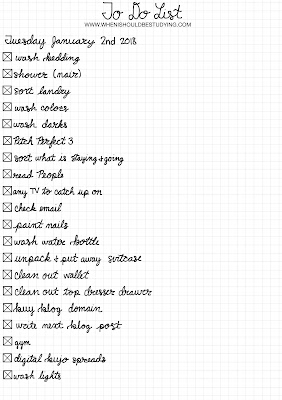 To Do List
WWW.WHENISHOULDBESTUDYING.COM
Tuesday January 2nd 2018
wash bedding
shower (nair)
sort laundry
wash colors
wash darks
Pitch Perfect 3
sort what is staying + going
read People
any TV to catch up on
check email
paint nails
wash water bottle
unpack + put away suitcase
clean out wallet
clean out top dresser drawer
buy blog domain
write next blog post
gym
digital bujo spreads
wash lights